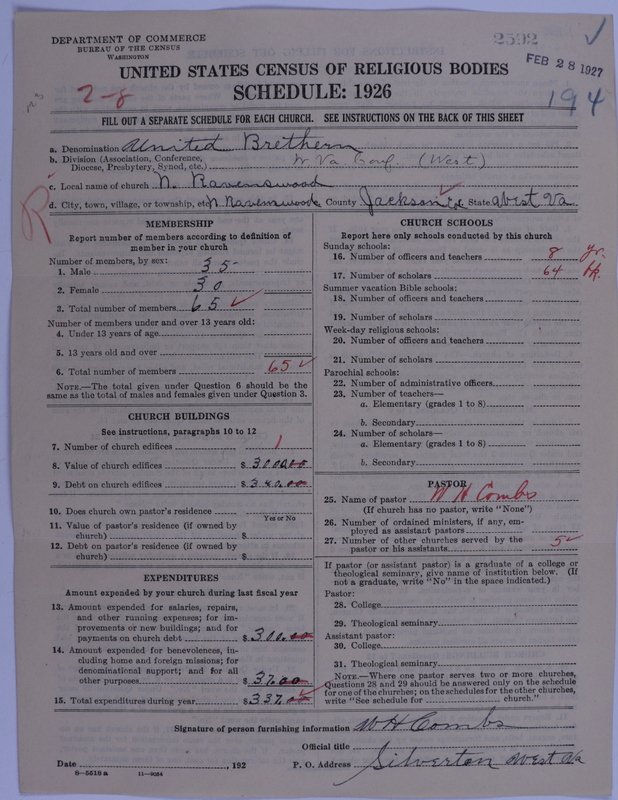 DEPARTMENT OF COMMERCE
BUREAU OF THE CENSUS
WASHINGTON
2592
FEB 28 1927
194
2-8
UNITED STATES CENSUS OF RELIGIOUS BODIES
SCHEDULE: 1926
FILL OUT A SEPARATE SCHEDULE FOR EACH CHURCH. SEE INSTRUCTIONS ON THE BACK OF THIS SHEET
a. Denomination United Brethern
b. Division (Association, Conference, Diocese, Presbytery, Synod, etc.) W Va Conf. (West)
c. Local name of church N. Ravenswood
d. City, town, village, or township, etc. N. Ravenswook County Jackson Co State West Va
R
MEMBERSHIP
Report number of members according to definition of
member in your church
Number of members, by sex:
1. Male 35
2. Female 30
3. Total number of members 65
Number of members under and over 13 years old:
4. Under 13 years of age
5. 13 years old and over
6. Total number of members 65
NOTE.—The total given under Question 6 should be the
same as the total of males and females given under Question 3.
CHURCH BUILDINGS
See instructions, paragraphs 10 to 12
7. Number of church edifices 1
8. Value of church edifices $ 3000.00
9. Debt on church edifices $ 340.00
10. Does church own pastor's residence
Yes or No
11. Value of pastor's residence (if owned by
church) $
12. Debt on pastor's residence (if owned by
church) $
EXPENDITURES
Amount expended by your church during last fiscal year
13. Amount expended for salaries, repairs,
and other running expenses; for im-
provements or new buildings; and for
payments on church debt $ 300.00
14. Amount expended for benevolences, in-
cluding home and foreign missions; for
denominational support; and for all
other purposes $ 37.00
15. Total expenditures during year $ 337.00
CHURCH SCHOOLS
Report here only schools conducted by this church
Sunday schools:
16. Number of officers and teachers 8 yr.
17. Number of scholars 64
Summer vacation Bible schools:
18. Number of officers and teachers
19. Number of scholars
Week-day religious schools:
20. Number of officers and teachers
21. Number of scholars
Parochial schools:
22. Number of administrative officers
23. Number of teachers—
a. Elementary (grades 1 to 8)
b. Secondary
24. Number of scholars—
a. Elementary (grades 1 to 8)
b. Secondary
PASTOR
25. Name of pastor W H Combs
(If church has no pastor, write "None")
26. Number of ordained ministers, if any, em-
ployed as assistant pastors
27. Number of other churches served by the
pastor or his assistants 5
If pastor (or assistant pastor) is a graduate of a college or
theological seminary, give name of institution below. (If
not a graduate, write "No" in the space indicated.)
Pastor:
28. College
29. Theological seminary
Assistant pastor:
30. College
31. Theological seminary
NOTE.—Where one pastor serves two or more churches,
Questions 28 and 29 should be answered only on the schedule
for one of the churches; on the schedules for the other churches,
write "See schedule for church."
Signature of person furnishing information W H Combs
Official title
Date , 192
P. O. Address Silverton West Va
8—5518 a 11—9064